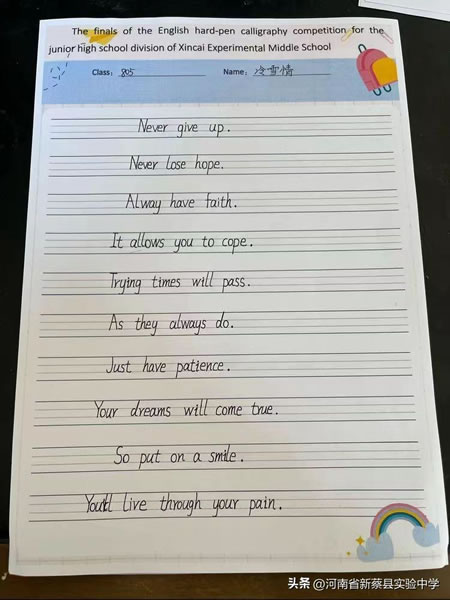 The finals of the English hard-pen calligraphy competition for the
junior high school division of Xincai Experimental Middle School
Class: 805 Name: 冷雪情
Never give up.
Never lose hope.
Alway have faith.
It allows you to cope.
Trying times will pass.
As they always do.
Just have patience.
Your dreams will come true.
So put on a smile.
You'll live through your pain.
头条 @河南省新蔡县实验中学